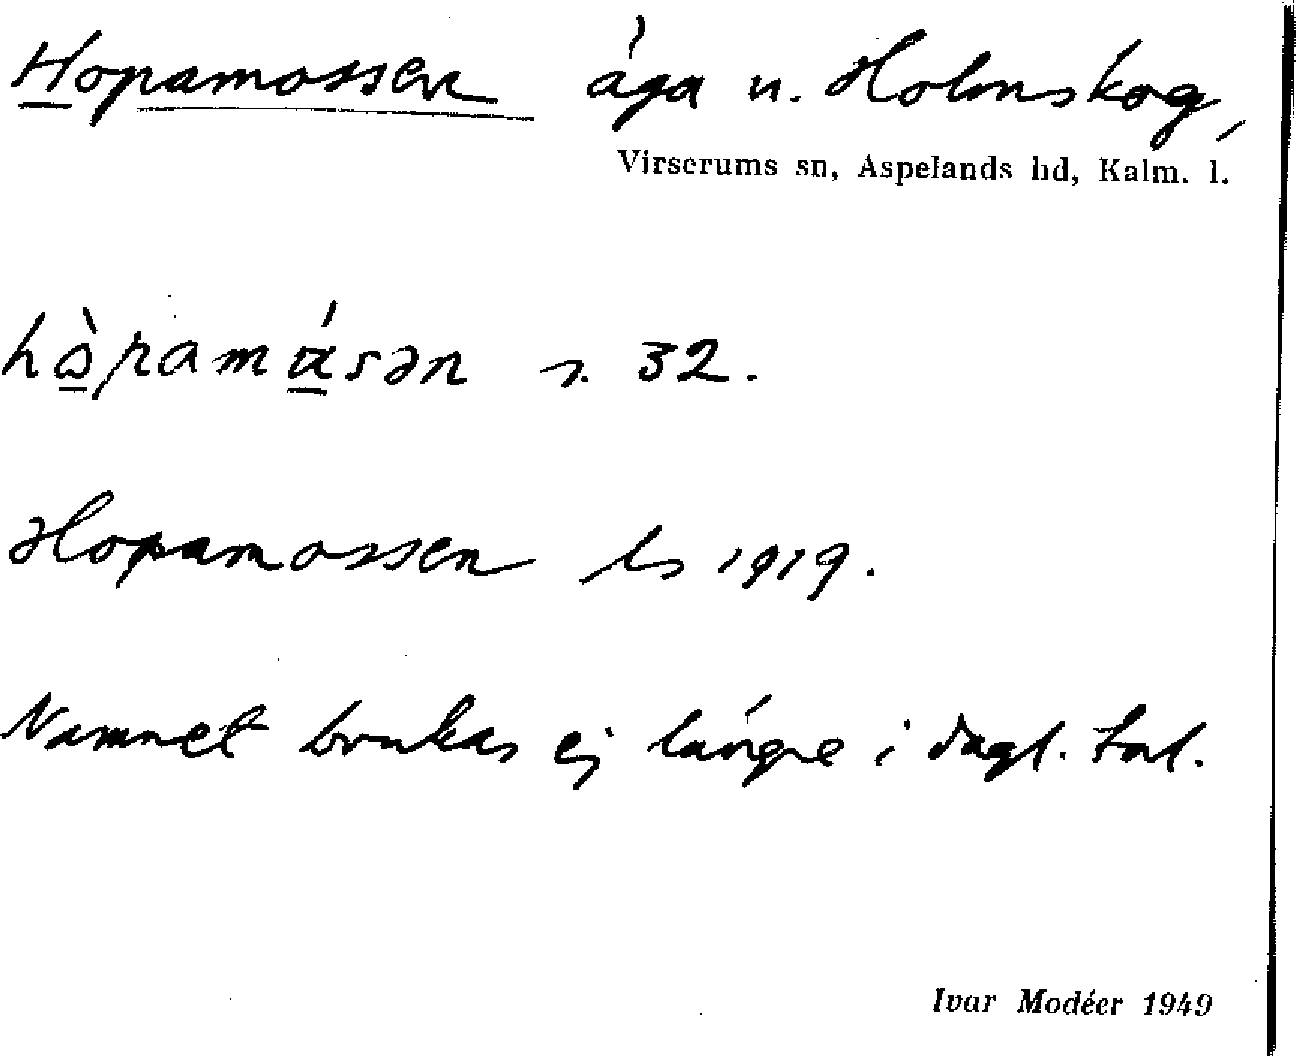 Hopamossen äga u. Holmskog,
Virserums sn, Aspelands hd, Kalm. l.
hɷ̀pamɑ́sən s. 32.
Hopamossen ls 1919.
Namnet brukas ej längre i dagl. tal.
Ivar Modéer 1949